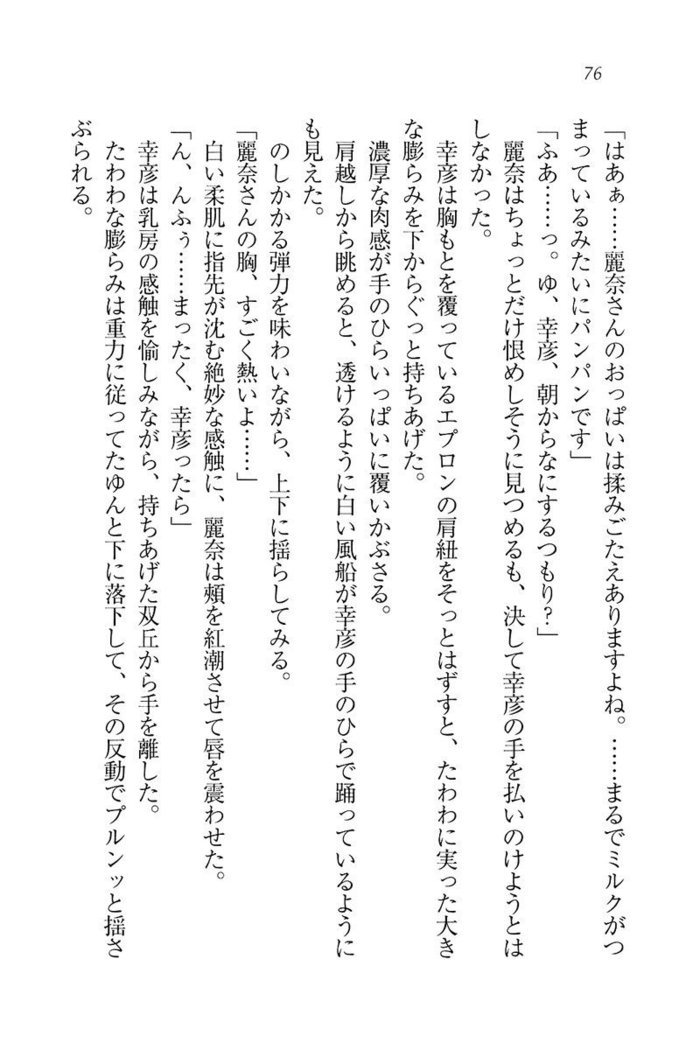 76
「はあぁ……麗奈さんのおっぱいは揉みごたえありますよね。……まるでミルクがつ
まっているみたいにパンパンです」
「ふあ……っ。ゆ、幸彦、朝からなにするつもり？」
麗奈はちょっとだけ恨めしそうに見つめるも、決して幸彦の手を払いのけようとは
しなかった。
幸彦は胸もとを覆っているエプロンの肩紐をそっとはずすと、たわわに実った大き
な膨らみを下からぐっと持ちあげた。
濃厚な肉感が手のひらいっぱいに覆いかぶさる。
肩越しから眺めると、透けるように白い風船が幸彦の手のひらで踊っているように
も見えた。
のしかかる弾力を味わいながら、上下に揺らしてみる。
「麗奈さんの胸、すごく熱いよ……」
白い柔肌に指先が沈む絶妙な感触に、麗奈は頰を紅潮させて唇を震わせた。
「ん、んふぅ……まったく、幸彦ったら」
幸彦は乳房の感触を愉しみながら、持ちあげた双丘から手を離した。
たわわな膨らみは重力に従ってたゆんと下に落下して、その反動でプルンッと揺さ
ぶられる。